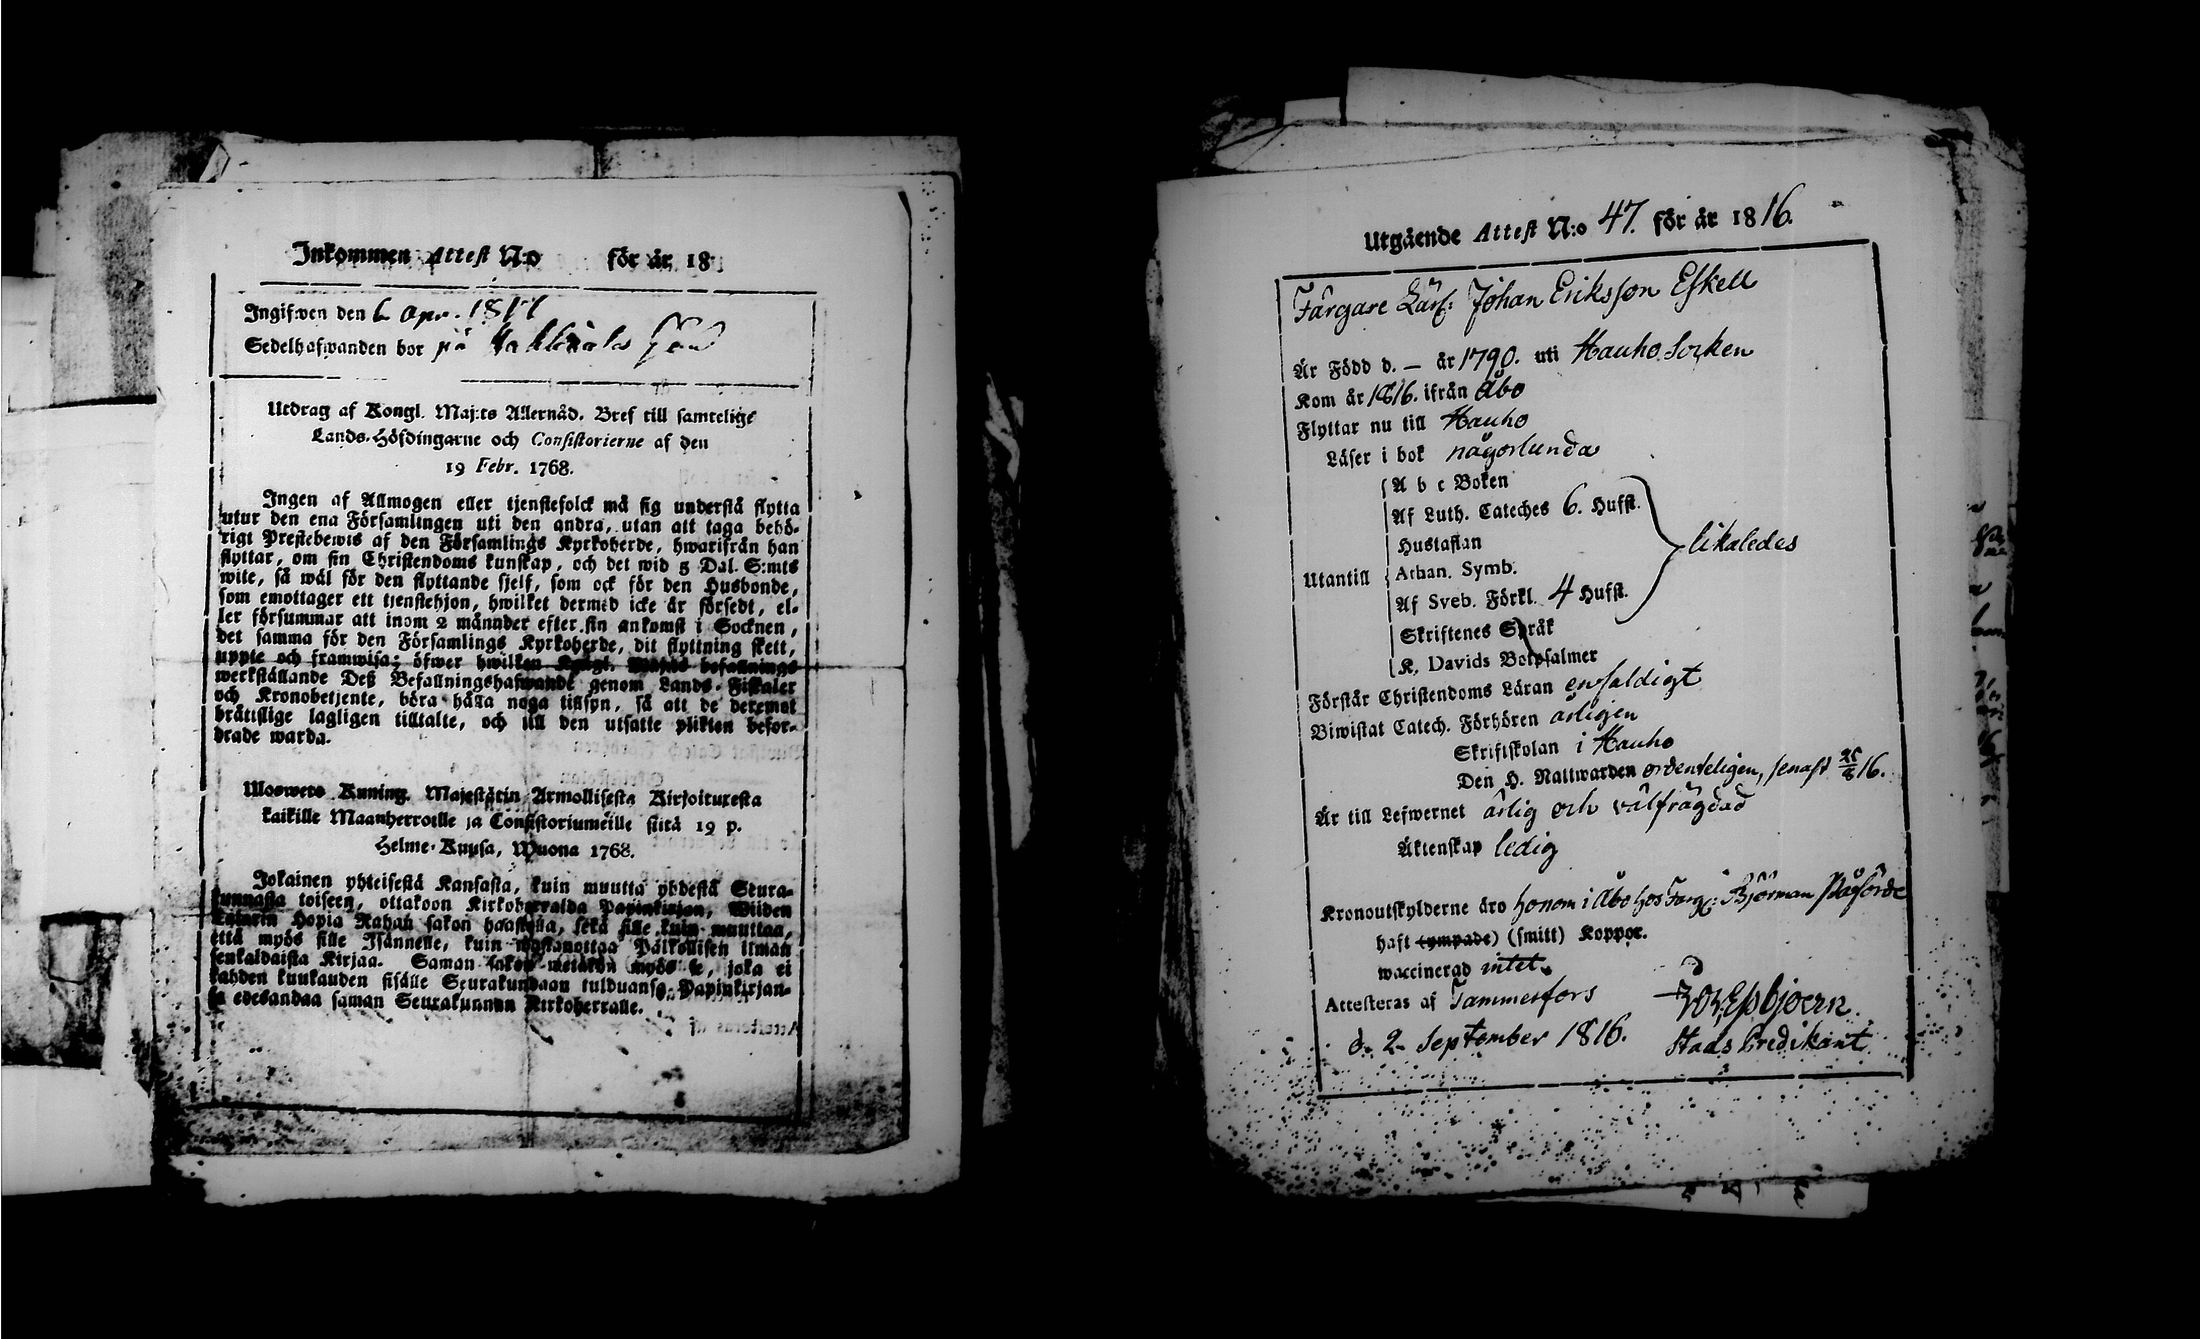 Inkommen Attest N:o för år 18
Ingifwen den 6 Apr. 1817
Sedelhafwanden bor på
Utdrag af Kongl. Maj:ts Allernåd. Bref till samtelige
Lands-Höfdingarne och Consistorierne af den
19 Febr. 1768.
Ingen af Allmogen eller tjenstefolck må sig understå flytta
utur den ena Församlingen uti den andra, utan att taga behö-
rigt Prestebewis af den Församlings Kyrkoherde, hwarifrån han
flyttar, om sin Christendoms kunskap, och det wid 5 Dal. S:mts
wite, så wäl för den flyttande sjelf, som ock för den Husbonde,
som emottager ett tjenstehjon, hwilket dermed icke är försedt, el-
ler försummar att inom 2 månader efter sin ankomst i Socknen,
det samma för den Församlings Kyrkoherde, dit flyttning skett,
uppte och framwisa; öfwer hwilken Kongl. Maj:ts befallnings
werkställande Deß Befallningshafwande genom Lands-Fiskaler
och Kronobetjente, böra hålla noga tillsyn, så att de deremot
brättslige lagligen tilltalte, och till den utsatte plikten befor-
drade warda.
Ulosweto Kuning. Majestätin Armollisesta Kirjoituxesta
kaikille Maanherroille ja Consistoriumeille siitä 19 p.
Helme-Kuusa, Wuona 1768.
Jokainen yhteisestä Kansasta, kuin muutta yhdestä Seura-
kunnasta toiseen, ottakoon Kirkoherralda Papinkirjan, Wiiden
Talarin Hopia Rahan sakon haastolla, sekä sille kuin muuttaa,
että myös sille Isännelle, kuin wastanottaa Palkollisen ilman
senkaldaista Kirjaa. Saman sakon wetäkön myös se, joka ei
kahden kuukauden sisälle Seurakundaan tulduansa Papinkirjan-
sa edesandaa saman Seurakunnan Kirkoherralle.
Utgående Attest N:o 47. för år 1816.
Färgare Lärl: Johan Eriksson Eskell
Är Född d. – år 1790. uti Hauho Socken
Kom år 1816. ifrån Åbo
Flyttar nu till Hauho
Läser i bok någorlunda
A b c Boken
Af Luth. Cateches 6. Hufst.
Hustaflan
likaledes
Utantill Athan. Symb.
Af Sveb. Förkl. 4 Hufst.
Skriftenes Språk
K. Davids Botpsalmer
Förstår Christendoms Läran enfaldigt
Biwistat Catech. Förhören årligen
Skriftskolan i Hauho
Den H. Nattwarden ordenteligen, senast 25/8 16.
Är till Lefwernet ärlig och välfrägdad
Äktenskap ledig
Kronoutskylderne äro honom i Åbo hos Färg: Björman påförde
haft (ympade) (smitt) Koppor.
waccinerad intet.
Attesteras af Tammerfors
d. 2 September 1816.
Stads Predikant